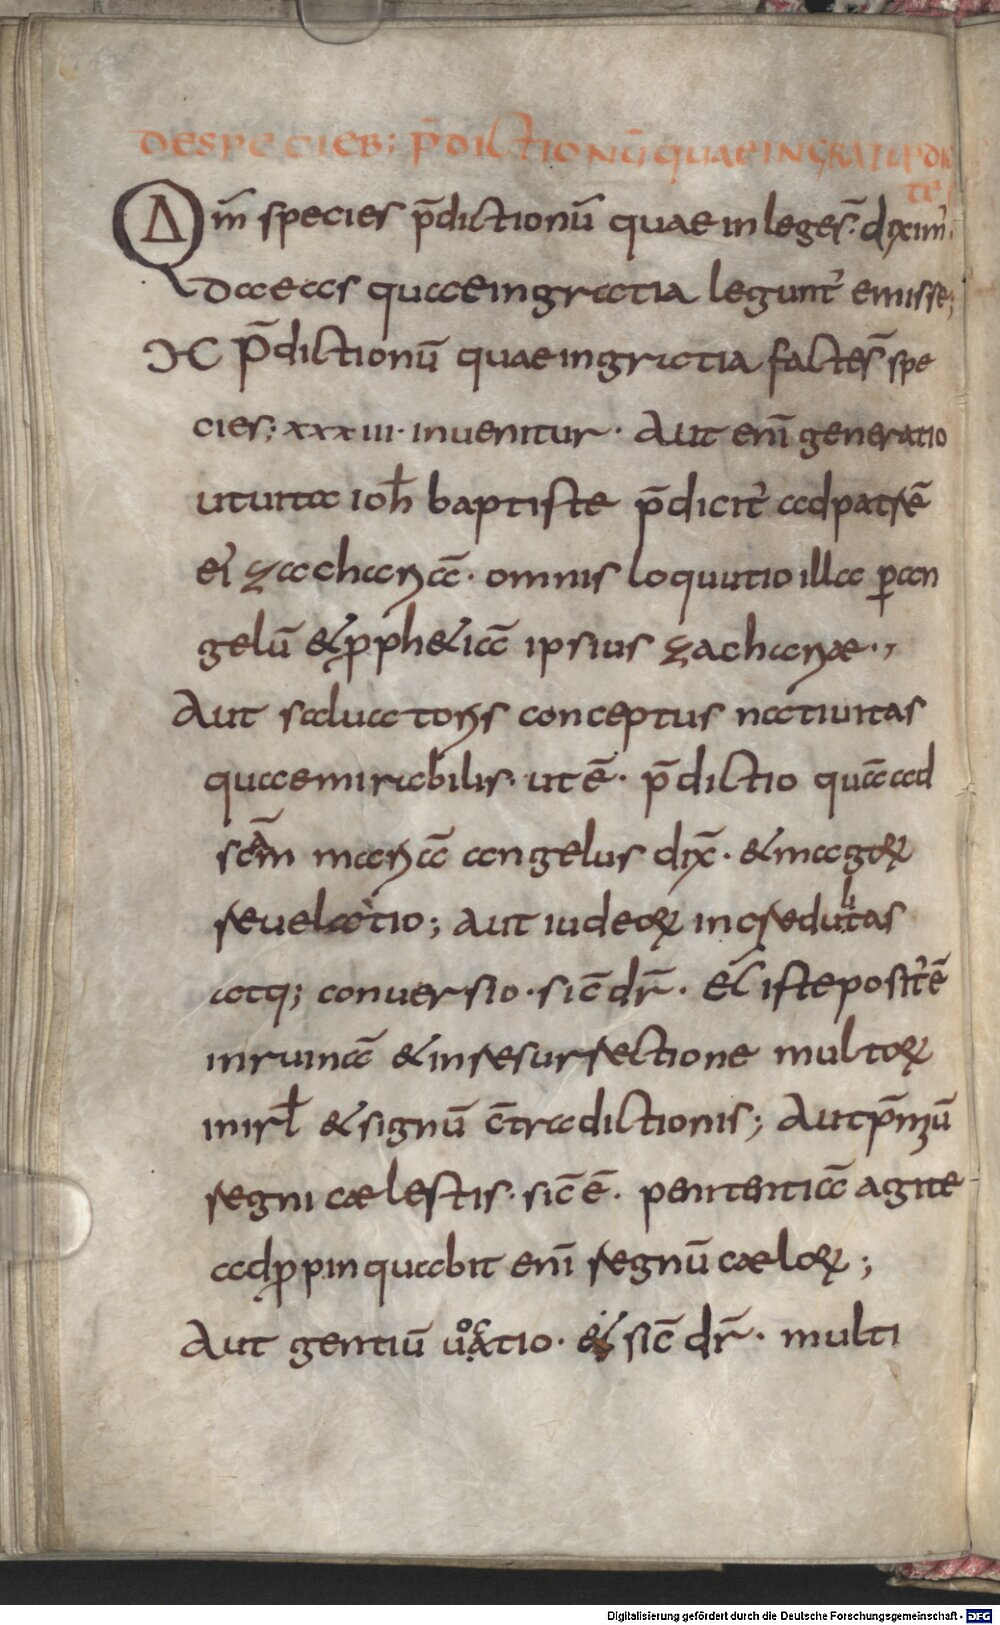 DESPECIEB; p̄DICTIONŪ QUAE IN GRATIA PDIC
TE
QA m̄ species p̄dictionū quae in leges̄ diximꝰ
ad eas quae in gratia leguntꝰ emisse;
p̄dictionū quae in gratia factes̄ spe
cies; xxxiii· inuenitur· Aut eni̅ generatio
ut uita ioh̄ baptiste p̄dicitꝰ ad patrē
eiꝰ zachariā· omnis loquutio illa ꝑ an
gelū & ꝓph&icā ipsius zachariae·,
Aut saluatoris conceptus natiuitas
quae mirabilis· ut ē· p̄dictio quā ad
scām mariā angelus dix̄· & magoꝝ
reuelatio; Aut iudeoꝝ incredulitas
atq; conuersio· sic̄ dr̄· Ec̄ iste positꝰ ē
in ruinā & in resurrectione multoꝝ
in irl̄ & signū c̄tradictionis; Aut p̄miū
regni caelestis· sic̄ ē· penitentiā agite
adꝓpinquabit eni̅ regnū caeloꝝ;
Aut gentiū uocatio· & sic̄ dr̄· multi
Digitalisierung gefördert durch die Deutsche Forschungsgemeinschaft - DFG